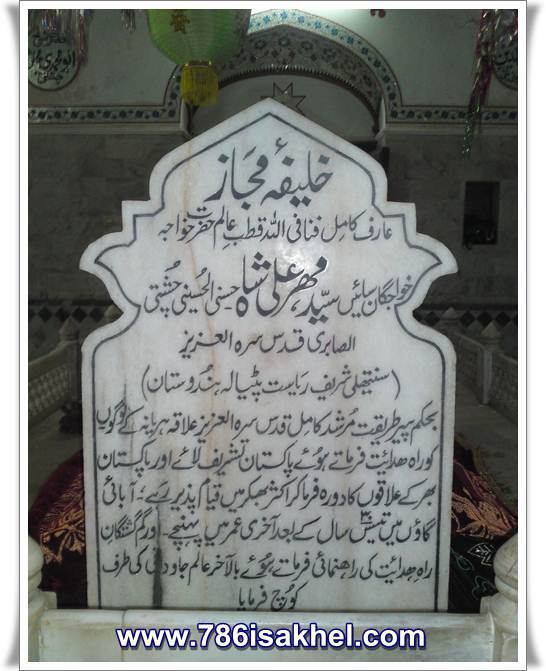 خلیفۂ مجاز
عارف کامل فنا فی اللہ قطب عالم حضرت خواجہ
خواجگان سائیں سیّد مہر علی شاہ حسنی الحسینی چشتی
الصابری قدس سرہ العزیز
(سنتھلی شریف ریاست پٹیالہ ہندوستان)
بحکم پیر طریقت مُرشد کامل قدس سرہ العزیز علاقہ ہریانہ کے لوگوں
کو راہ ھدائیت فرماتے ہوئے پاکستان تشریف لائے اور پاکستان
بھر کے علاقوں کا دورہ فرما کر اکثر بھکر میں قیام پذیر رہے؛ آبائی
گاؤں میں تیس ۳۰ سال کے بعد آخری عمر میں پہنچے۔ اور گم گشتگان
راہِ ھدائیت کی راھنمائی فرماتے ہوئے بالآخر عالم جاودانی کی طرف
کوچ فرمایا
www.786isakhel.com